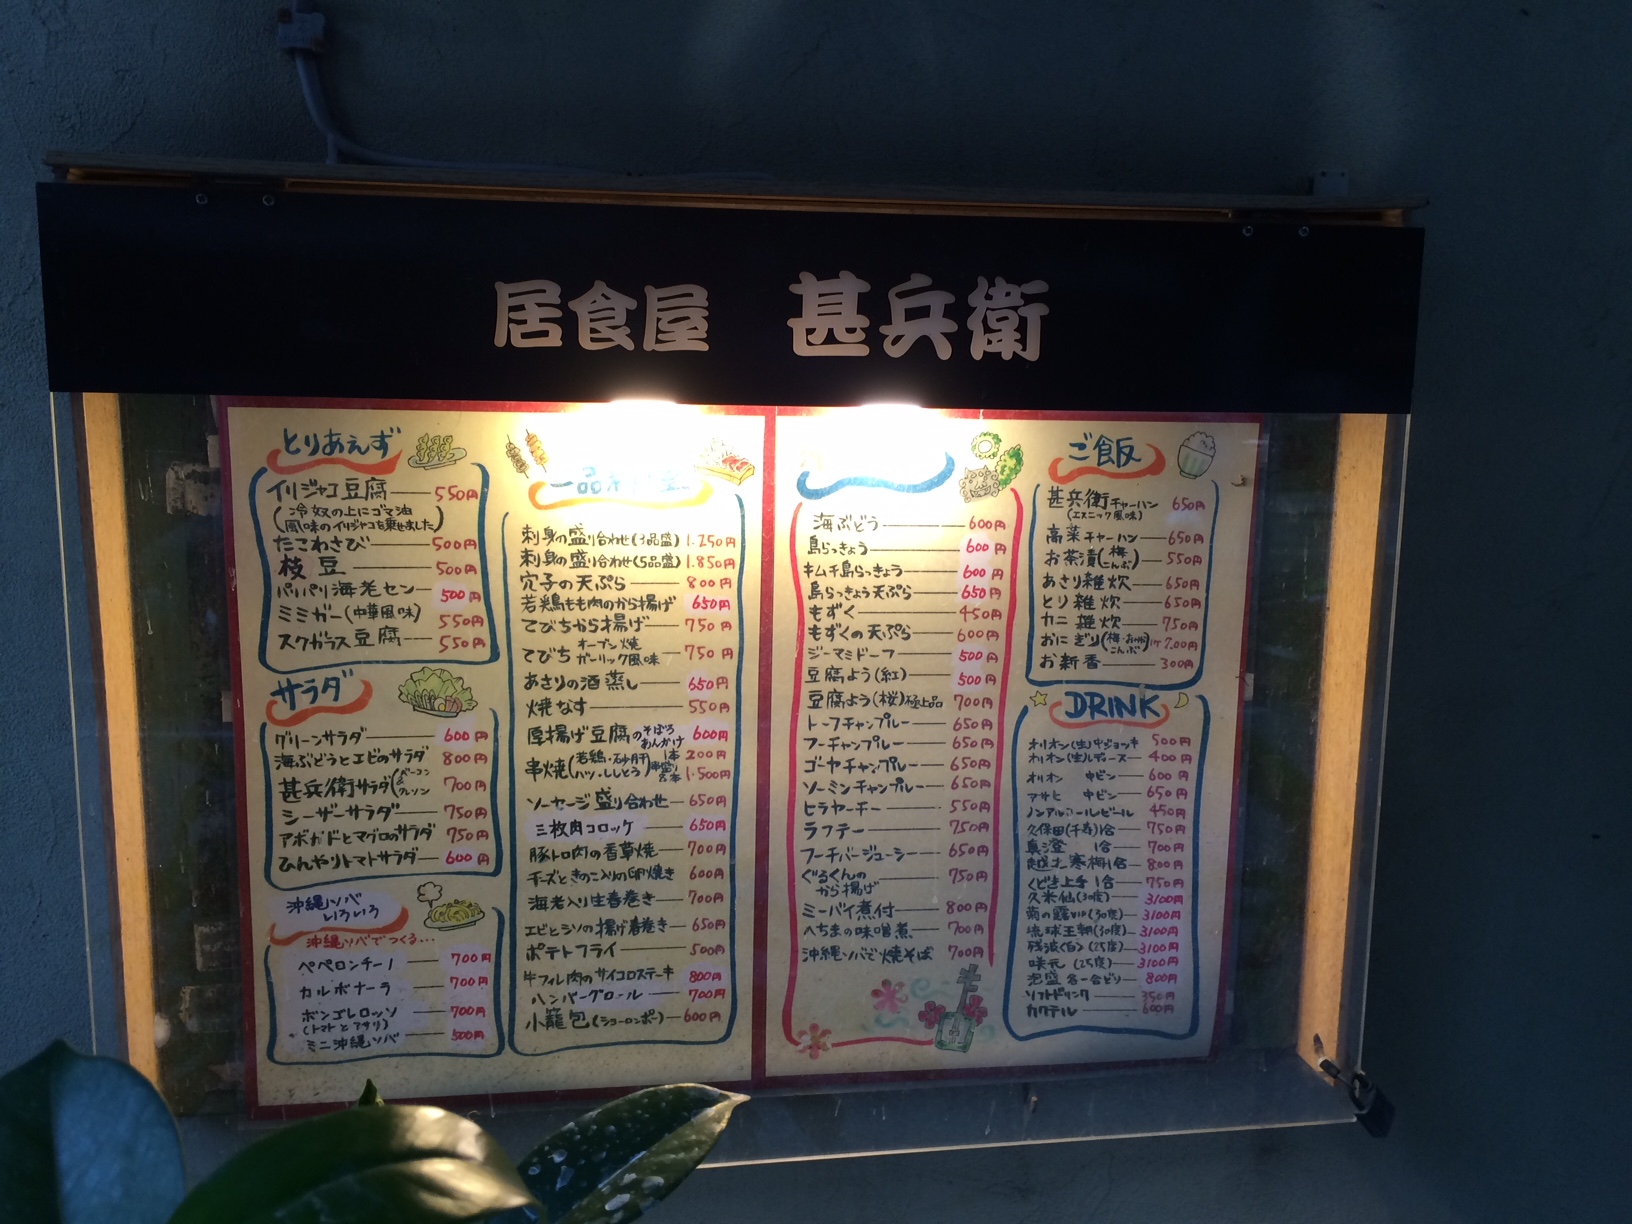 居食屋 甚兵衛
とりあえず
イリジャコ豆腐 550円
(冷奴の上にゴマ油
風味のイリジャコを乗せました)
たこわさび 500円
枝豆 500円
パリパリ海老セン 500円
ミミガー(中華風味) 550円
スクガラス豆腐 550円
サラダ
グリーンサラダ 600円
海ぶどうとエビのサラダ 800円
甚兵衛サラダ 700円
シーザーサラダ 750円
アボガドとマグロのサラダ 750円
ひんやりトマトサラダ 600円
沖縄ソバ
いろいろ
沖縄ソバでつくる...
ペペロンチーノ 700円
カルボナーラ 700円
ボンゴレロッソ 700円
(トマトとアサリ)
ミニ沖縄ソバ 500円
一品
刺身の盛り合わせ(3品盛) 1.250円
刺身の盛り合わせ(5品盛) 1.850円
穴子の天ぷら 800円
若鶏もも肉のから揚げ 650円
てびちから揚げ 750円
てびち オーブン焼 ガーリック風味 750円
あさりの酒蒸し 650円
焼なす 550円
厚揚げ豆腐のそぼろあんかけ 600円
串焼(若鶏・砂肝 1本 200円
ハツ・ししとう) 1.500円
ソーセージ盛り合わせ 650円
三枚肉コロッケ 650円
豚トロ肉の香草焼 700円
チーズときのこ入りの卵焼き 600円
海老入り生春巻き 700円
エビとシソの揚げ春巻き 650円
ポテトフライ 500円
牛フィレ肉のサイコロステーキ 800円
ハンバーグロール 700円
小籠包(ショーロンポー) 600円
海ぶどう 600円
島らっきょう 600円
キムチ島らっきょう 600円
島らっきょう天ぷら 650円
もずく 450円
もずくの天ぷら 600円
ジーマミドーフ 500円
豆腐よう(紅) 500円
豆腐よう(桜)極上品 700円
トーフチャンプルー 650円
フーチャンプルー 650円
ゴーヤチャンプルー 650円
ソーミンチャンプルー 650円
ヒラヤーチー 550円
ラフテー 750円
フーチバージューシー 650円
ぐるくんの
から揚げ 750円
ミーバイ煮付 800円
へちまの味噌煮 700円
沖縄ソバで焼そば 700円
ご飯
甚兵衛チャーハン 650円
(エスニック風味)
高菜チャーハン 650円
お茶漬(梅・こんぶ) 550円
あさり雑炊 650円
とり雑炊 650円
カニ雑炊 750円
おにぎり 200円
お新香 300円
DRINK
オリオン(生)中ジョッキ 500円
オリオン(生)レディース 400円
オリオン 中ビン 600円
アサヒ 中ビン 650円
ノンアルコールビール 450円
久保田(千寿)1合 750円
真澄 1合 700円
越乃寒梅1合 800円
くどき上手1合 750円
久米仙(30度) 3100円
菊の露VIP(30度) 3100円
琉球王朝(30度) 3100円
残波〈白〉(25度) 3100円
咲元(25度) 3100円
泡盛各一合どり 800円
ソフトドリンク 350円
カクテル 600円